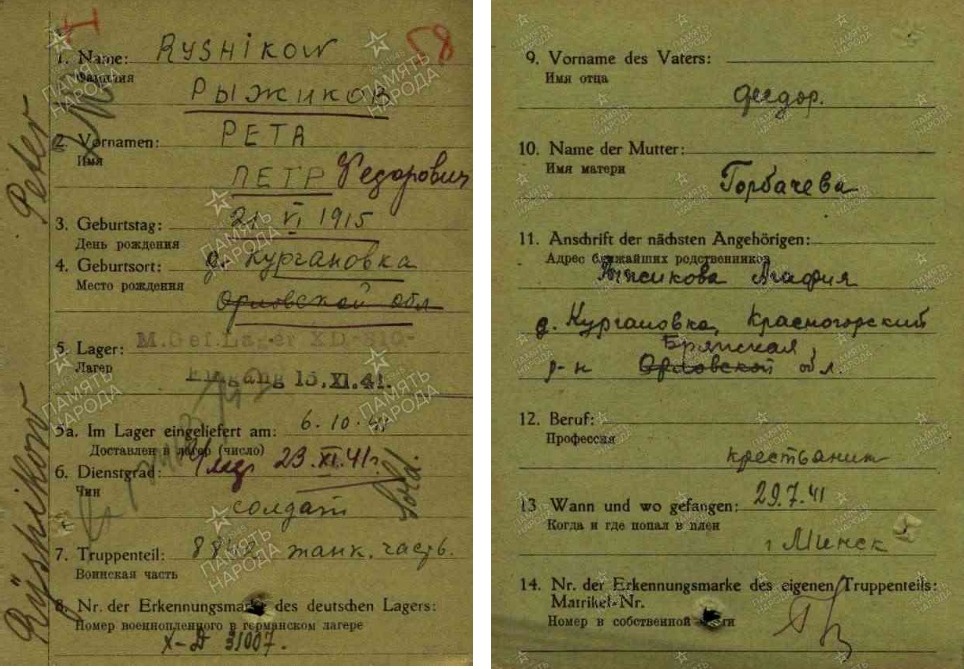 I
58
1. Name: RYSHIKOW
Фамилия
РЫЖИКОВ
2. Vornamen: PETR
Имя
ПЕТР Федорович
3. Geburtstag: 21 VI 1915
День рождения
4. Geburtsort: д. Кургановка
Место рождения
Орловской обл
5. Lager: M.Gef.Lager XD
Лагерь
Eingang 15.XI.41.
5a. Im Lager eingeliefert am: 6.10.41
Доставлен в лагерь (число)
6. Dienstgrad: 23.XI.41г.
Чин
солдат
Sold.
7. Truppenteil: танк. часть.
Воинская часть
8. Nr. der Erkennungsmarke des deutschen Lagers:
Номер военнопленного в германском лагере
X-D 31007.
Peter
Ryshikow
9. Vorname des Vaters:
Имя отца
Федор.
10. Name der Mutter:
Имя матери
Горбачева
11. Anschrift der nächsten Angehörigen:
Адрес ближайших родственников
Рыжикова Агафия
д. Кургановка, Красногорский
Брянская
р-н Орловской обл.
12. Beruf:
Профессия
крестьянин
13 Wann und wo gefangen: 29.7.41
Когда и где попал в плен
г. Минск
14. Nr. der Erkennungsmarke des eigenen Truppenteils:
Matrikel-Nr.
Номер в собственной части
ПАМЯТЬ НАРОДА